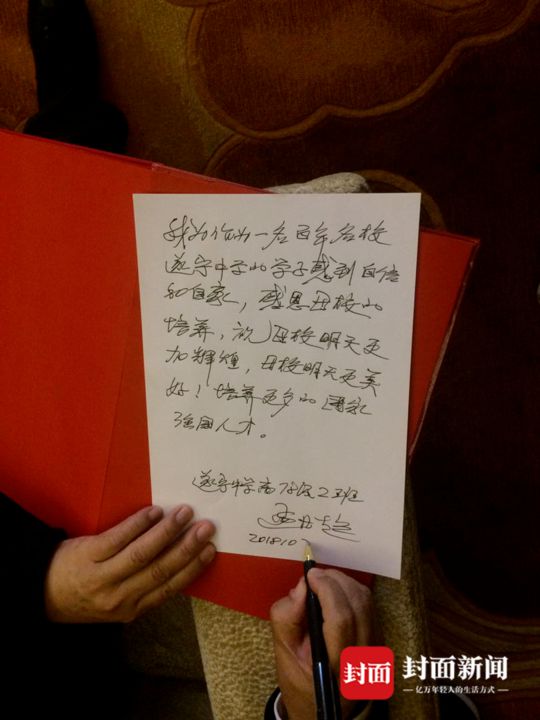 我为作为一名百年名校
遂宁中学的学子感到自信
和自豪，感恩母校的
培养，祝母校明天更
加辉煌，母校明天更美
好！培养更多的国家
强国人才。
遂宁中学高78级2班
2018.10
封面
封面新闻
亿万年轻人的生活方式